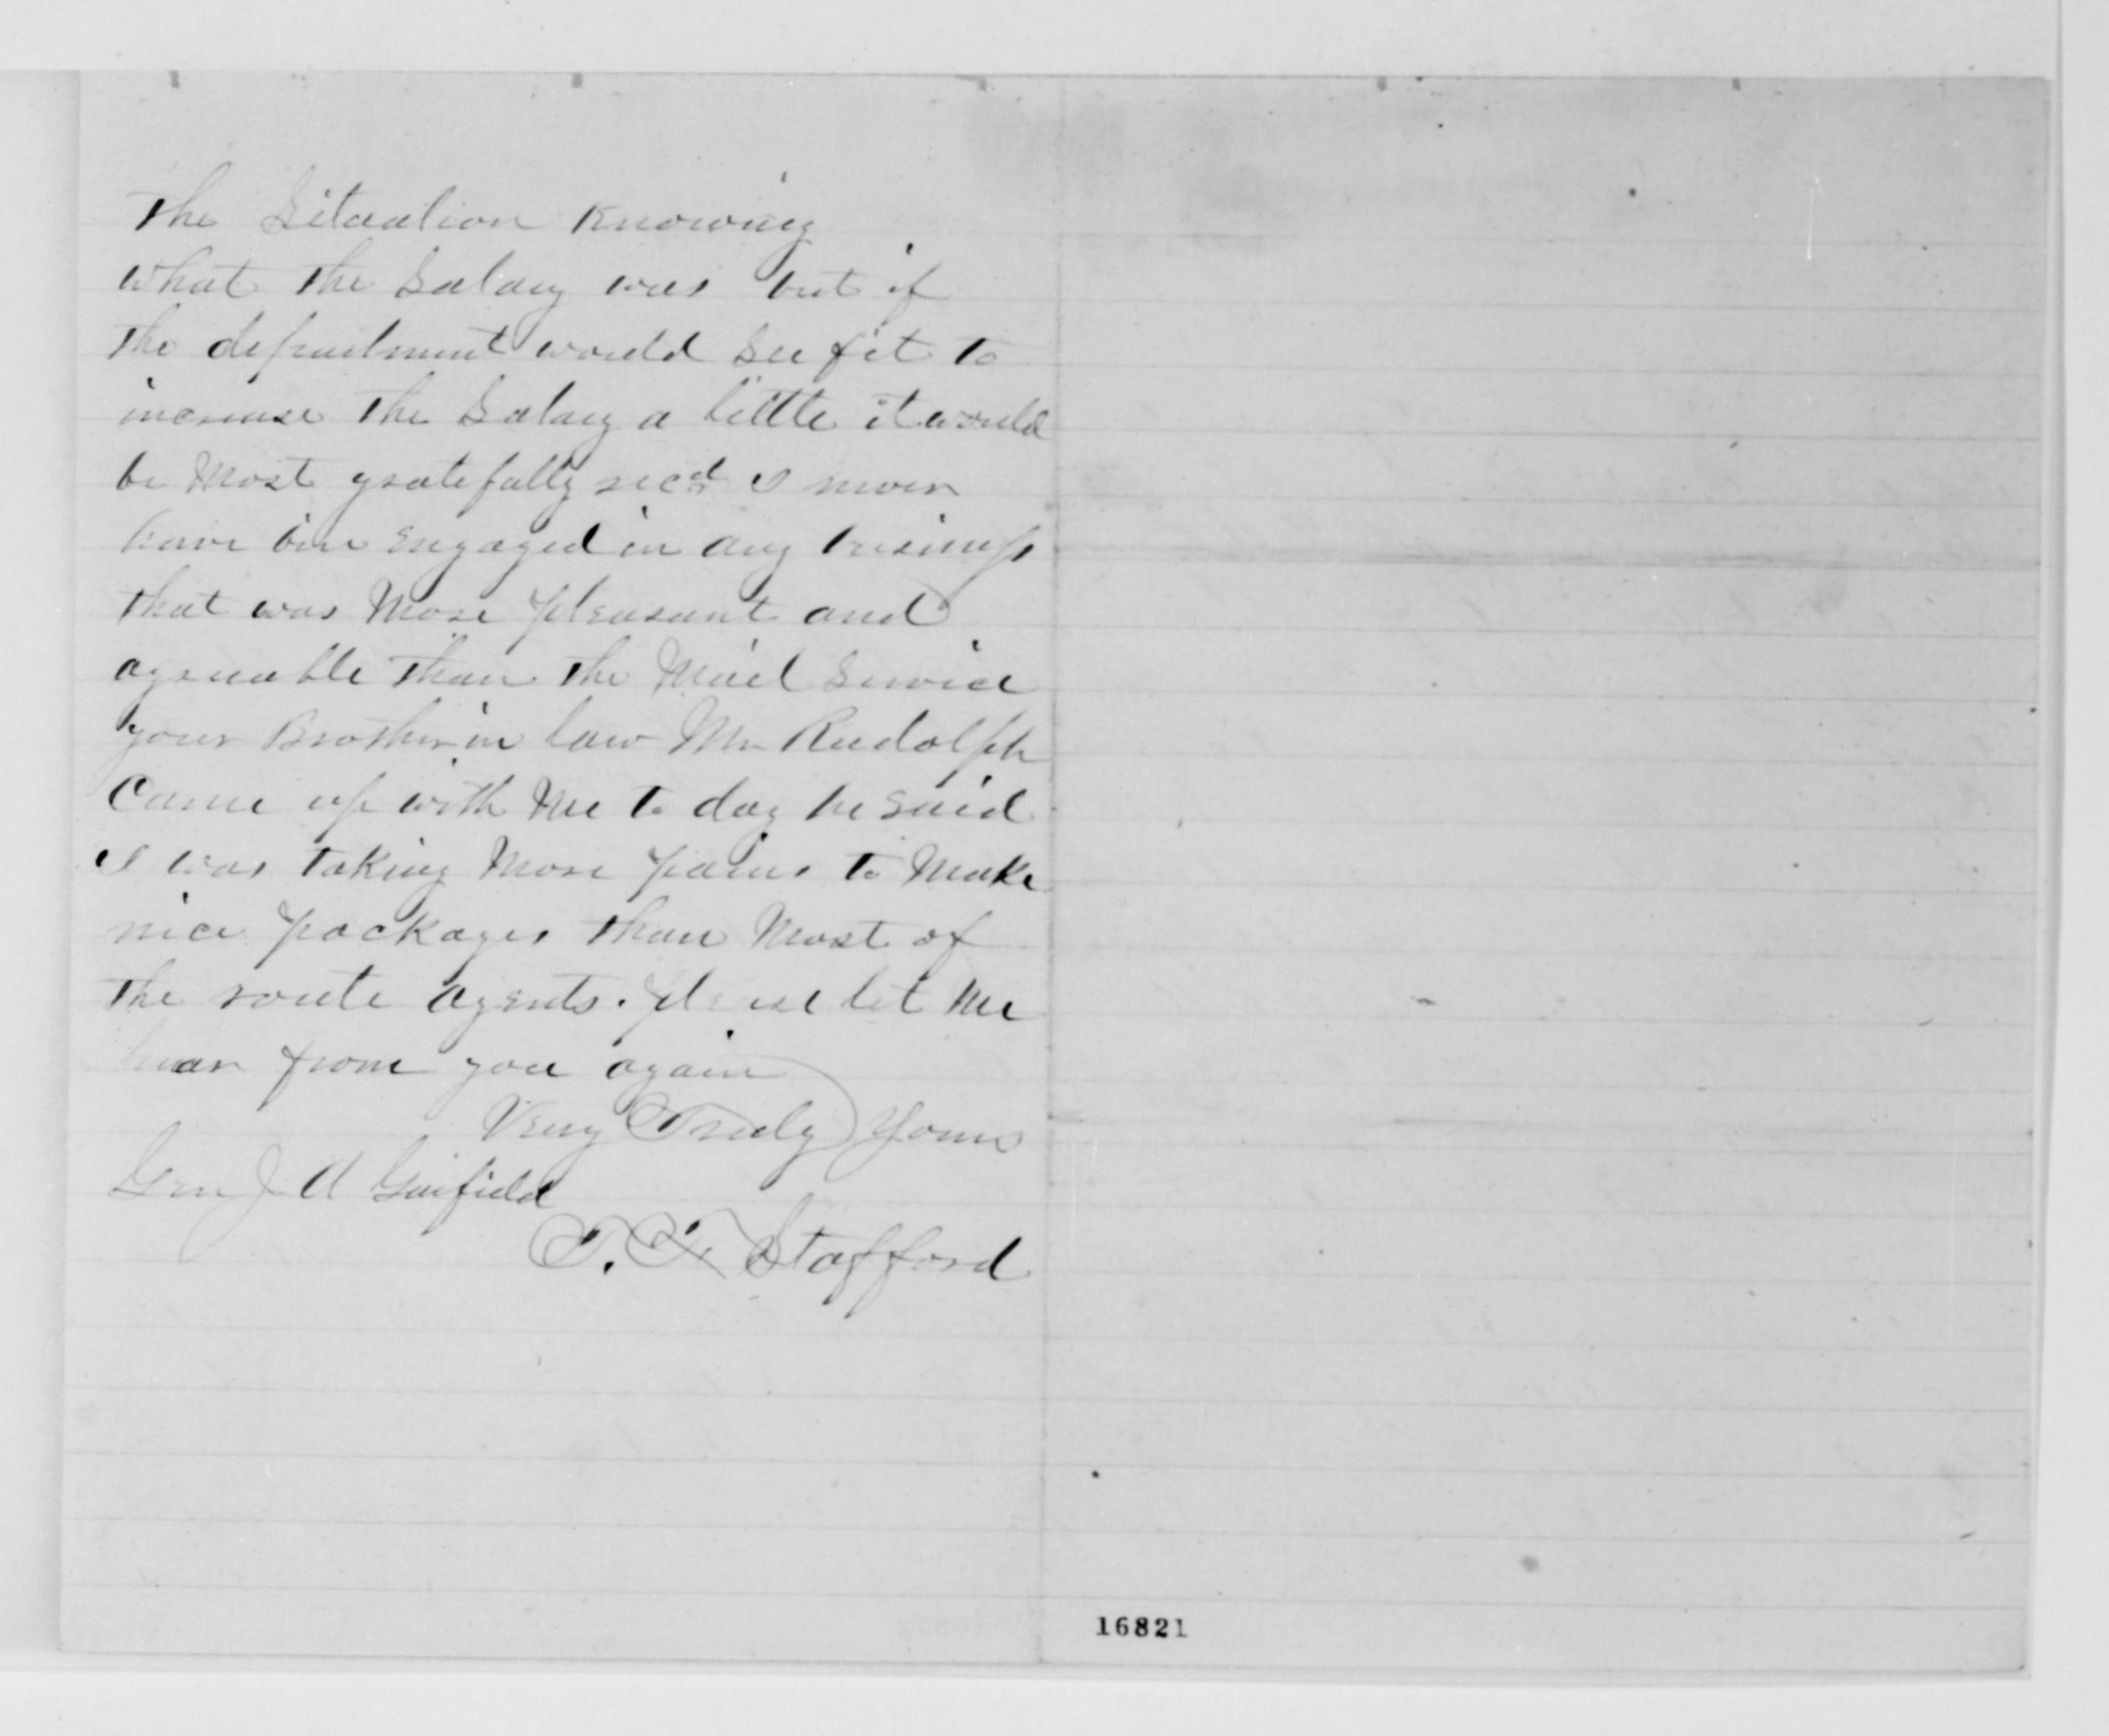 The Situation Knowing
what the Salary was but if
the department would See fit to
increase the Salary a little it would
be Most gratefully recd I never
have bin Engaged in any business
that was More pleasant and
agreeable than the Mail Service
your Brother in law Mr Rudolph
Came up with Me to day he Said
I was taking More pains to Make
nice packages than Most of
the route agents. please let Me
hear from you again
Very Truly Yours
Gen J A Garfield
T. T. Stafford
16821